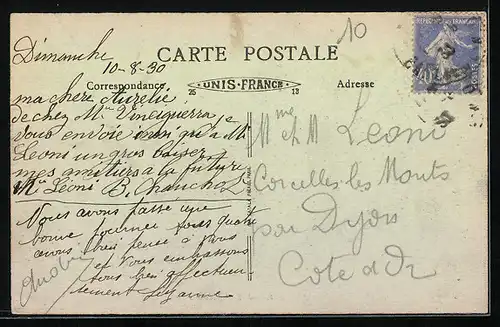 Dimanche
10-8-30
CARTE POSTALE
Correspondance
UNIS-FRANCE
25
13
Adresse
10
REPUBLIQUE FRANCAISE
POSTES
ma chere Aurelie
de chez Mr Vinciguerra je
vous envoie ainsi qu'a Mr
Leoni un gros baiser
mes amitiers a la future
Me Léoni B.
Nous avons passé une
bonne journée tous quatre
avons bien pensé à vous
et vous embrassons
tous bien affectueu
sement Suzanne
Mme et M Leoni
Corcelles les Monts
par Dijon
Cote d'Or